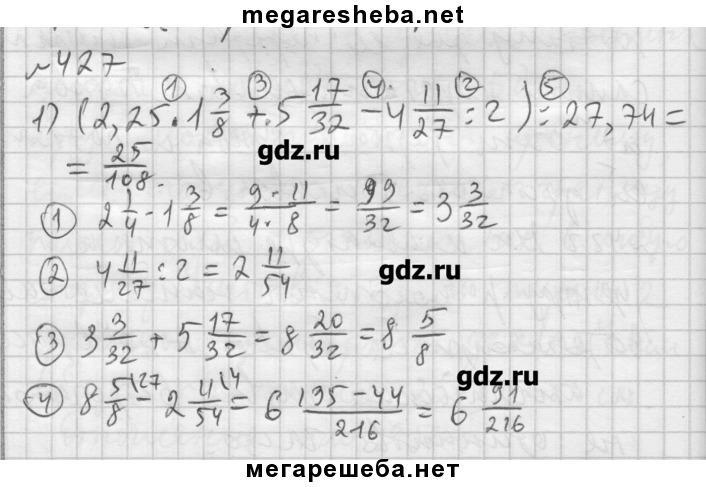 megaresheba.net
№ 427
1) (2,25 · 1 3/8 + 5 17/32 − 4 11/27 : 2) : 27,74 =
① ③ ④ ② ⑤
= 25/108.
gdz.ru
① 2 1/4 · 1 3/8 = 9 · 11/4 · 8 = 99/32 = 3 3/32
② 4 11/27 : 2 = 2 11/54
gdz.ru
③ 3 3/32 + 5 17/32 = 8 20/32 = 8 5/8
gdz.ru
④ 8 5/8 (27 − 2 11/54 (4 = 6 135 − 44/216 = 6 91/216
мегарешеба.нет